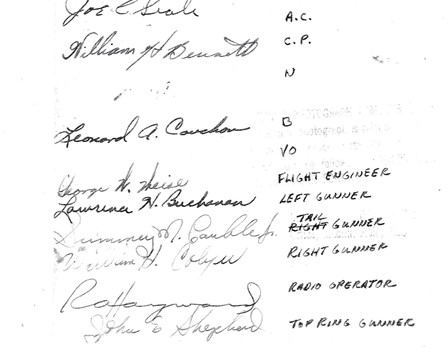 Joe C Seale A.C.
William H Bennett C.P.
N
Leonard A. Couchon B
VO
George W. Weise FLIGHT ENGINEER
Lawrence H. Buchanan LEFT GUNNER
TAIL
RIGHT GUNNER
William H. RIGHT GUNNER
R A Hayward RADIO OPERATOR
John E Shepherd TOP RING GUNNER